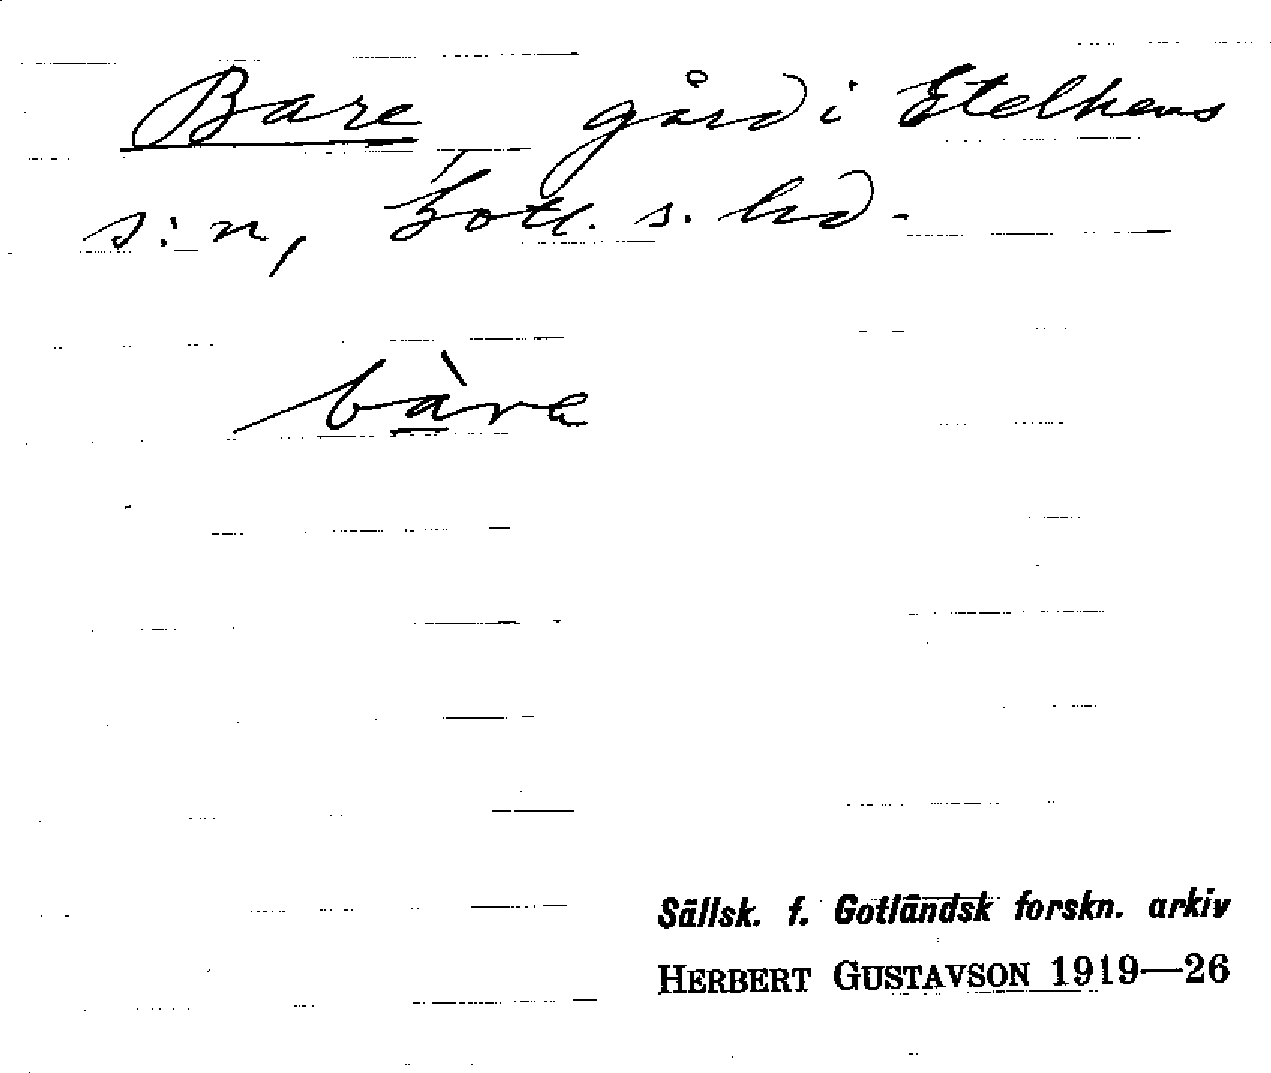 Bare gård i Etelhems
s:n, Gotl. s. hd.
bàre
Sällsk. f. Gotländsk forskn. arkiv
HERBERT GUSTAVSON 1919—26